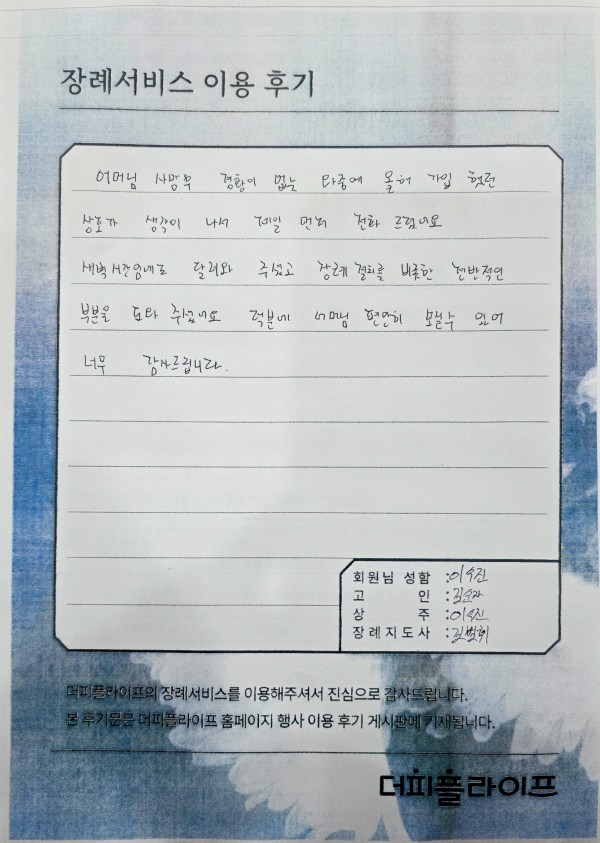 장례서비스 이용 후기
어머님 사망후 경황이 없는 와중에 올해 가입 했던
상조가 생각이 나서 제일 먼저 전화 드렸네요
새벽시간임에도 달려와 주셨고 장례절차를 비롯한 전반적인
부분을 도와 주셨네요 덕분에 어머님 편안히 모실수 있어
너무 감사드립니다.
회원님 성함 : 이수진
고 인 : 김순자
상 주 : 이수진
장례지도사 : 김범휘
더피플라이프의 장례서비스를 이용해주셔서 진심으로 감사드립니다.
본 후기문은 더피플라이프 홈페이지 행사 이용 후기 게시판에 기재됩니다.
더피플라이프